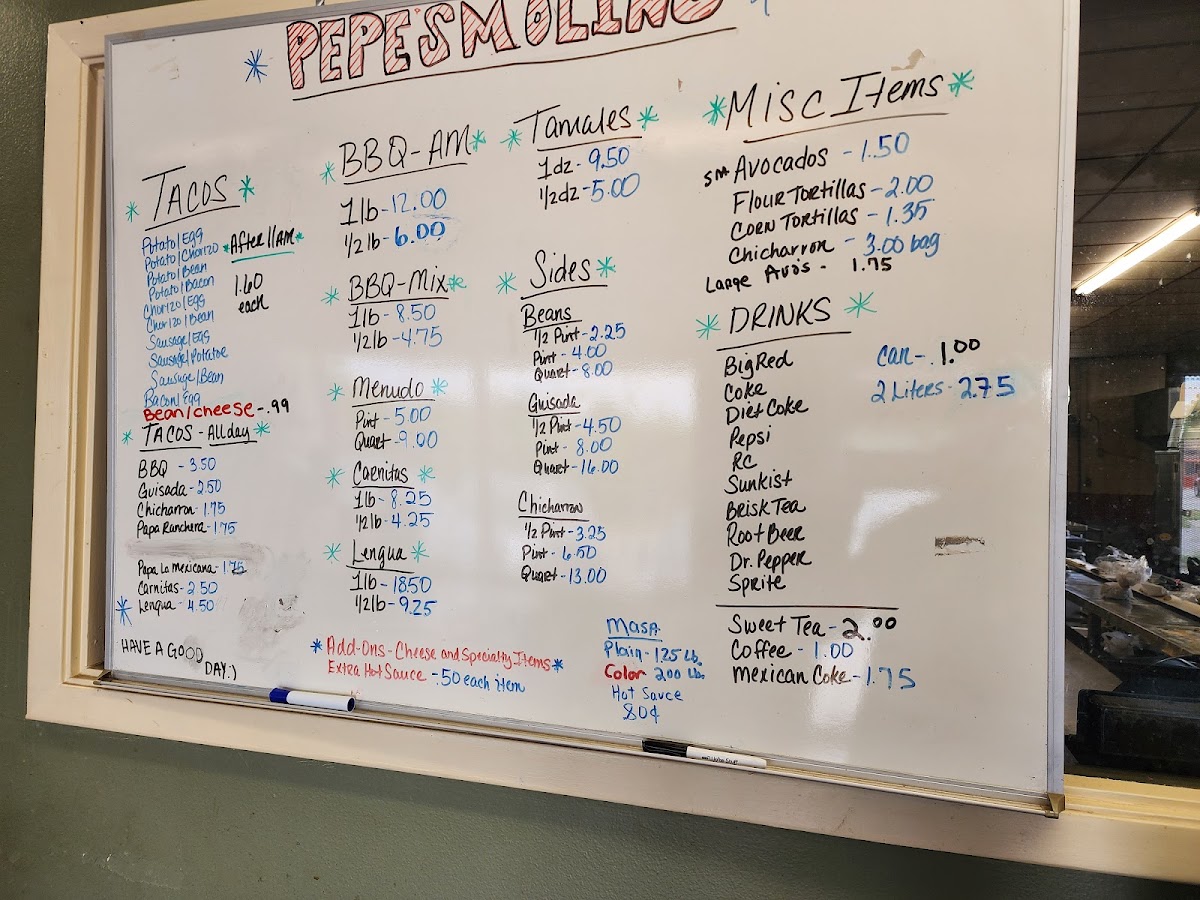 PEPE'S MOLINO
TACOS
Potato/Egg
Potato/Chorizo
Potato/Bean
Potato/Bacon
Chorizo/Egg
Chorizo/Bean
Sausage/Egg
Sausage/Potatoe
Sausage/Bean
Bacon/Egg
Bean/cheese - .99
*After 11AM*
1.60
each
TACOS - All day
BBQ - 3.50
Guisada - 2.50
Chicharron - 1.75
Papa Ranchera - 1.75
Papa La Mexicana - 1.75
Carnitas - 2.50
Lengua - 4.50
HAVE A GOOD
DAY :)
BBQ-AM
1lb - 12.00
1/2 lb - 6.00
BBQ-Mix
1lb - 8.50
1/2lb - 4.75
Menudo
Pint - 5.00
Quart - 9.00
Carnitas
1lb - 8.25
1/2lb - 4.25
Lengua
1lb - 18.50
1/2lb - 9.25
*Add-Ons - Cheese and Specialty Items*
Extra Hot Sauce - .50 each item
Tamales
1dz - 9.50
1/2dz - 5.00
Sides
Beans
1/2 Pint - 2.25
Pint - 4.00
Quart - 8.00
Guisada
1/2 Pint - 4.50
Pint - 8.00
Quart - 16.00
Chicharron
1/2 Pint - 3.25
Pint - 6.50
Quart - 13.00
Masa
Plain - 1.25 lb.
Color 2.00 lb.
Hot Sauce
80¢
Misc Items
sm Avocados - 1.50
Flour Tortillas - 2.00
Corn Tortillas - 1.35
Chicharron - 3.00 bag
Large Avo's - 1.75
DRINKS
Big Red
Coke
Diet Coke
Pepsi
RC
Sunkist
Brisk Tea
Root Beer
Dr. Pepper
Sprite
Can - 1.00
2 Liters - 2.75
Sweet Tea - 2.00
Coffee - 1.00
Mexican Coke - 1.75